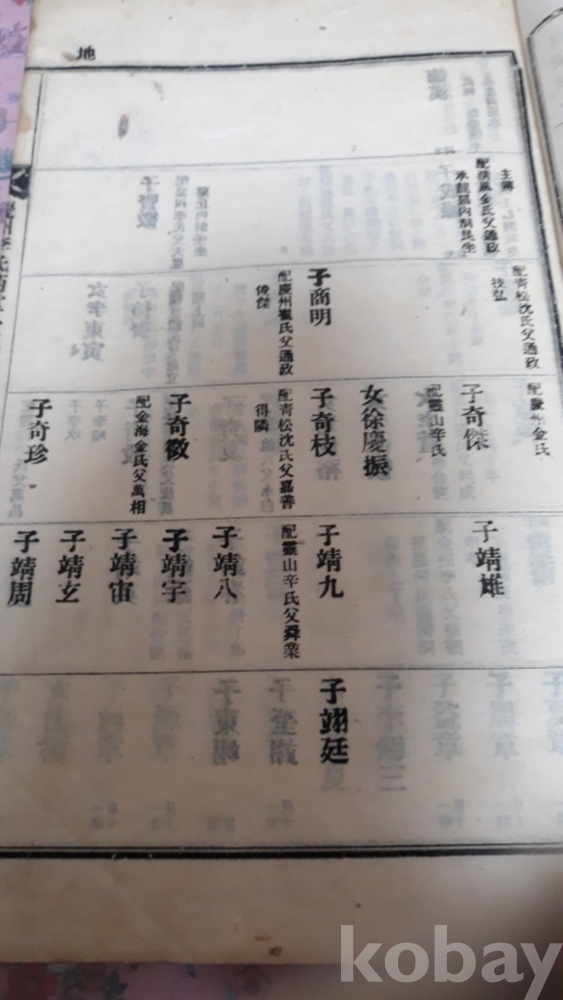 地
主簿
配淸風金氏父通政
水龍區內洞艮坐
配靑松沈氏父通政
技弘
子商明
配慶州崔氏父通政
俊傑
金氏
子奇傑
配靈山辛氏
女徐慶振
子奇枝
配靑松沈氏父嘉善
得隣
子奇徵
配金海金氏父萬相
子奇珍
子靖雄
子靖九
配靈山辛氏父舜業
子靖八
子靖宇
子靖宙
子靖玄
子靖周
子翊廷
kobay